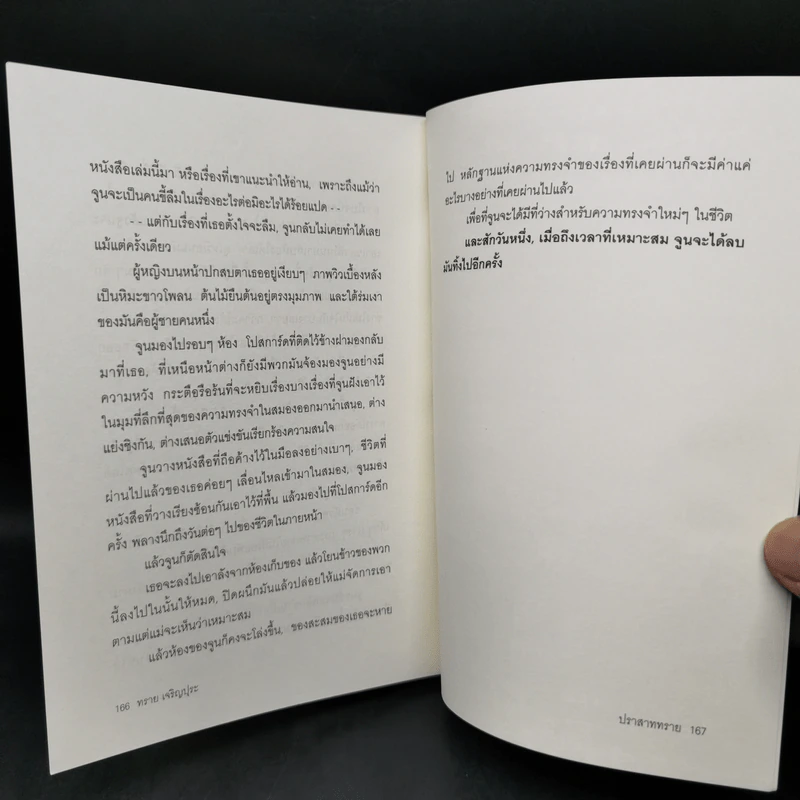 หนังสือเล่มนี้มา หรือเรื่องที่เขาแนะนำให้อ่าน, เพราะถึงแม้ว่า
จูนจะเป็นคนขี้ลืมในเรื่องอะไรต่อมิอะไรได้ร้อยแปด - -
- - แต่กับเรื่องที่เธอตั้งใจจะลืม, จูนกลับไม่เคยทำได้เลย
แม้แต่ครั้งเดียว
ผู้หญิงบนหน้าปกสบตาเธออยู่เงียบๆ ภาพวิวเบื้องหลัง
เป็นหิมะขาวโพลน ต้นไม้ยืนต้นอยู่ตรงมุมภาพ และใต้ร่มเงา
ของมันคือผู้ชายคนหนึ่ง
จูนมองไปรอบๆ ห้อง โปสการ์ดที่ติดไว้ข้างฝามองกลับ
มาที่เธอ, ที่เหนือหน้าต่างก็ยังมีพวกมันจ้องมองจูนอย่างมี
ความหวัง กระตือรือร้นที่จะหยิบเรื่องบางเรื่องที่จูนฝังเอาไว้
ในมุมที่ลึกที่สุดของความทรงจำในสมองออกมานำเสนอ, ต่าง
แย่งชิงกัน, ต่างเสนอตัวแข่งขันเรียกร้องความสนใจ
จูนวางหนังสือที่ถือค้างไว้ในมือลงอย่างเบาๆ, ชีวิตที่
ผ่านไปแล้วของเธอค่อยๆ เลื่อนไหลเข้ามาในสมอง, จูนมอง
หนังสือที่วางเรียงซ้อนกันเอาไว้ที่พื้น แล้วมองไปที่โปสการ์ดอีก
ครั้ง พลางนึกถึงวันต่อๆ ไปของชีวิตในภายหน้า
แล้วจูนก็ตัดสินใจ
เธอจะลงไปเอาลังจากห้องเก็บของ แล้วโยนข้าวของพวก
นี้ลงไปในนั้นให้หมด, ปิดผนึกมันแล้วปล่อยให้แม่จัดการเอา
ตามแต่แม่จะเห็นว่าเหมาะสม
แล้วห้องของจูนก็คงจะโล่งขึ้น, ของสะสมของเธอจะหาย
166 ทราย เจริญปุระ
ไป หลักฐานแห่งความทรงจำของเรื่องที่เคยผ่านก็จะมีค่าแค่
อะไรบางอย่างที่เคยผ่านไปแล้ว
เพื่อที่จูนจะได้มีที่ว่างสำหรับความทรงจำใหม่ๆ ในชีวิต
และสักวันหนึ่ง, เมื่อถึงเวลาที่เหมาะสม จูนจะได้ลบ
มันทิ้งไปอีกครั้ง
ปราสาททราย 167